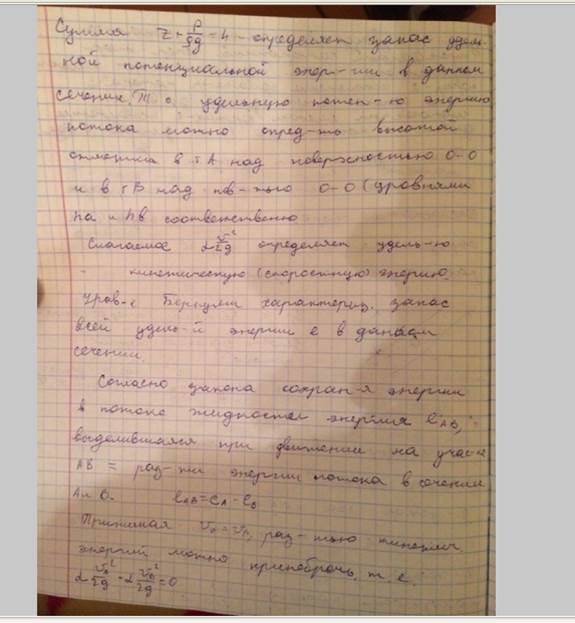 Сумма z + P/ρg = h - определяет запас удель-
ной потенциальной энер-гии в данном
сечении, т.о. удельную потен-ю энергию
потока можно опред-ть высотой
отметки в т А над поверхностью 0-0
и в т В над пов-тью 0-0 (уровнями
hа и hв соответственно
Слагаемое α v²/2g определяет удель-ю
кинетическую (скоростную) энергию.
Урав-е Бернулли характериз. запас
всей удель-й энергии е в данном
сечении.
Согласно закона сохран-я энергии
в потоке жидкостей энергия eAB,
выделившаяся при движении на участке
АВ = раз-ти энергии потока в сечении
А и В. eAB = eA - eB
Принимая vA = vB, раз-тью кинетич.
энергий можно принебречь, т.е.
α vA²/2g - α vB²/2g = 0